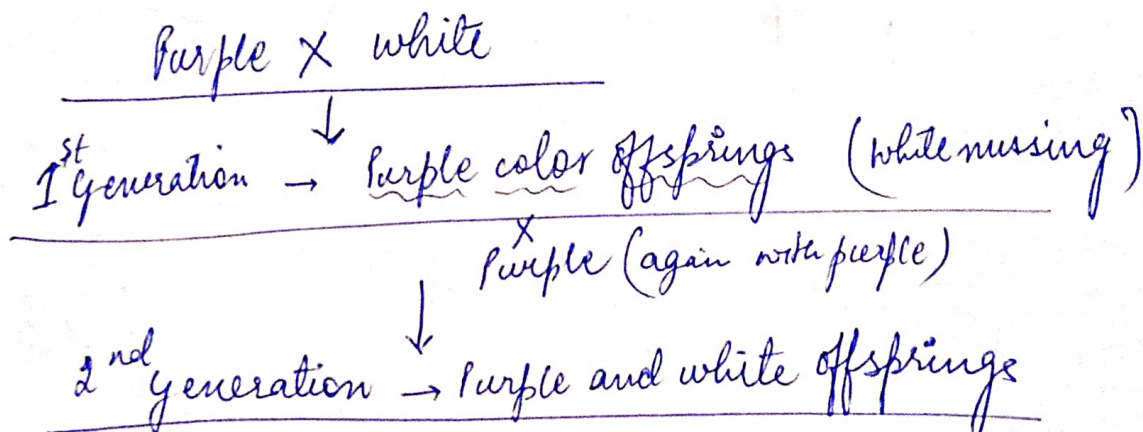 Purple X white
↓
1st Generation → Purple color offsprings (white missing)
X
Purple (again with purple)
↓
2nd Generation → Purple and white offsprings